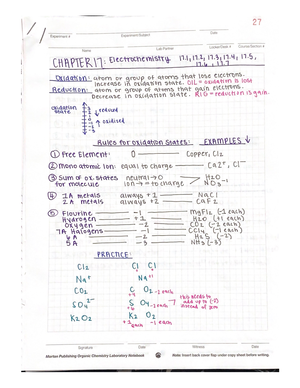 27
Experiment #
Experiment/Subject
Date
Name
Lab Partner
Locker/Desk #
Course/Section #
CHAPTER 17: Electrochemistry 17.1, 17.2, 17.3, 17.4, 17.5,
17.6, 17.7
Oxidation: atom or group of atoms that lose electrons.
Increase in oxidation state. OIL = oxidation is lost
Reduction: atom or group of atoms that gain electrons.
Decrease in oxidation state. RIG = reduction is gain.
oxidation state
reduced
oxidized
Rules for Oxidation States: EXAMPLES ↓
① Free Element: 0 Copper, Cl2
② Mono atomic Ion: equal to charge Ca2+, Cl-
③ Sum of ox. states for molecule neutral → 0 H2O
ion → = to charge NO3-1
④ 1A metals always + 1 NaCl
2A metals always +2 CaF2
⑤ Flourine -1 MgF2 (-1 each)
Hydrogen +1 H2O (+1 each)
Oxygen -2 CO2 (-2 each)
7A Halogens -1 CCl4 (-1 each)
6A -2 H2S (-2)
5A -3 NH3 (-3)
PRACTICE:
Cl2 Cl Cl
Na+ Na+
CO2 C O2 -2 each
SO4 2- S O4 -2 each
this needs to add up to (-2) instead of zero
K2O2 K2 O2
+1 each -1 each
Signature
Date
Witness
Date
Morton Publishing Organic Chemistry Laboratory Notebook
Note: Insert back cover flap under copy sheet before writing.